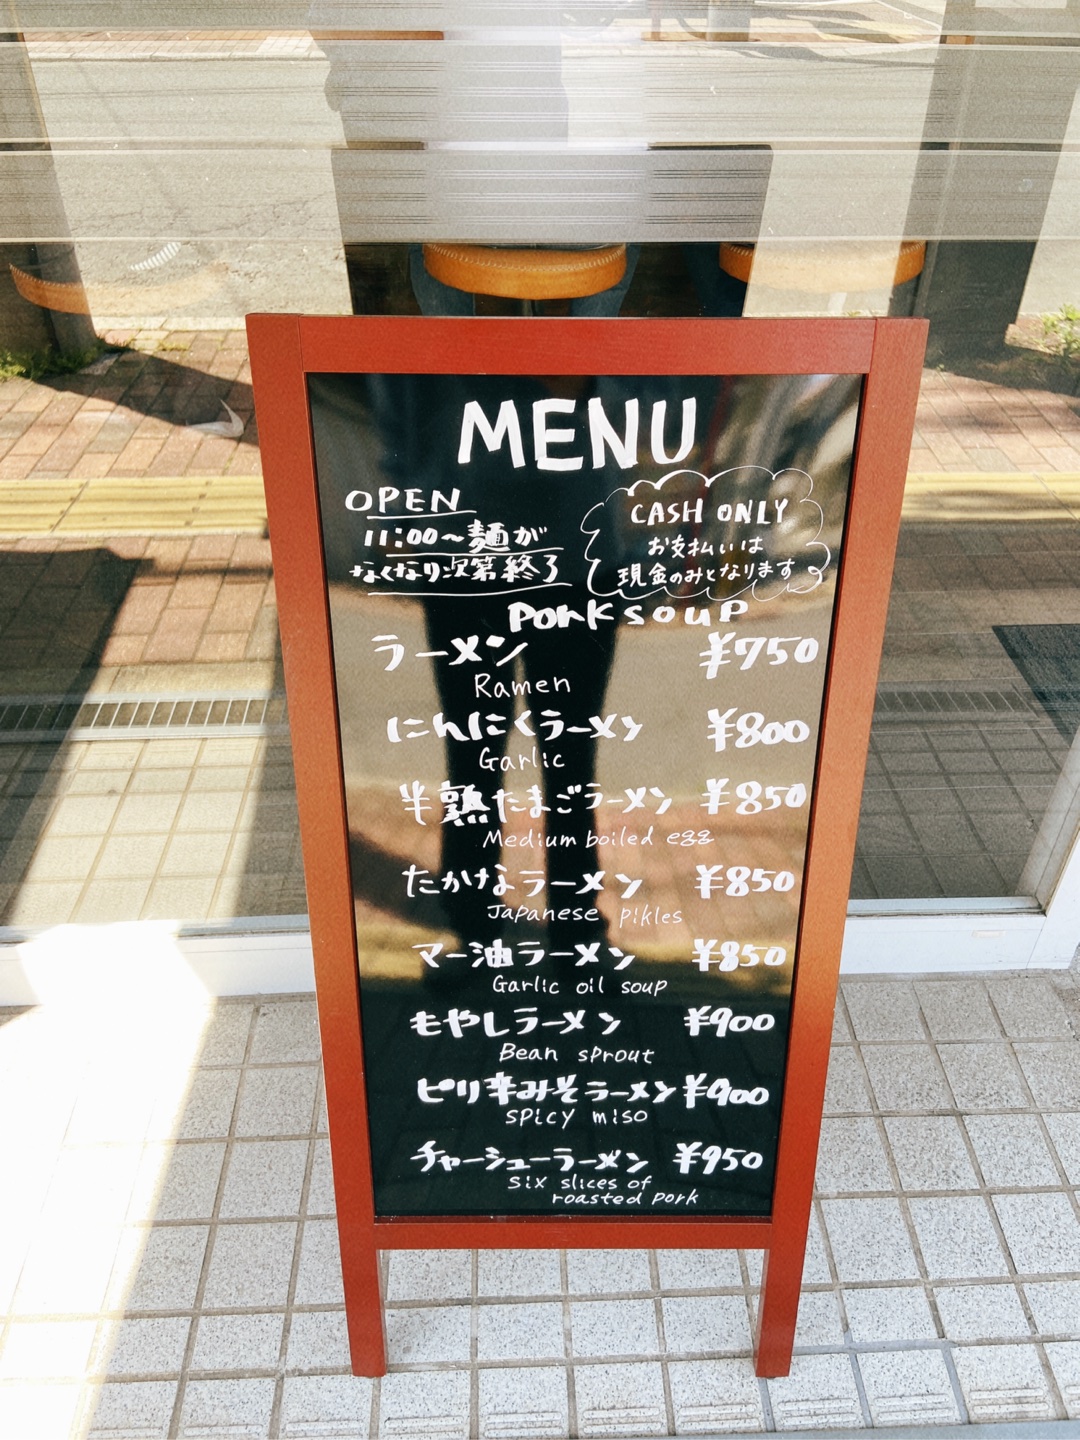 MENU
OPEN
11:00~麺が
なくなり次第終了
CASH ONLY
お支払いは
現金のみとなります
Pork soup
ラーメン ¥750
Ramen
にんにくラーメン ¥800
Garlic
半熟たまごラーメン ¥850
Medium boiled egg
たかなラーメン ¥850
Japanese pikles
マー油ラーメン ¥850
Garlic oil soup
もやしラーメン ¥900
Bean sprout
ピリ辛みそラーメン ¥900
spicy miso
チャーシューラーメン ¥950
six slices of
roasted pork